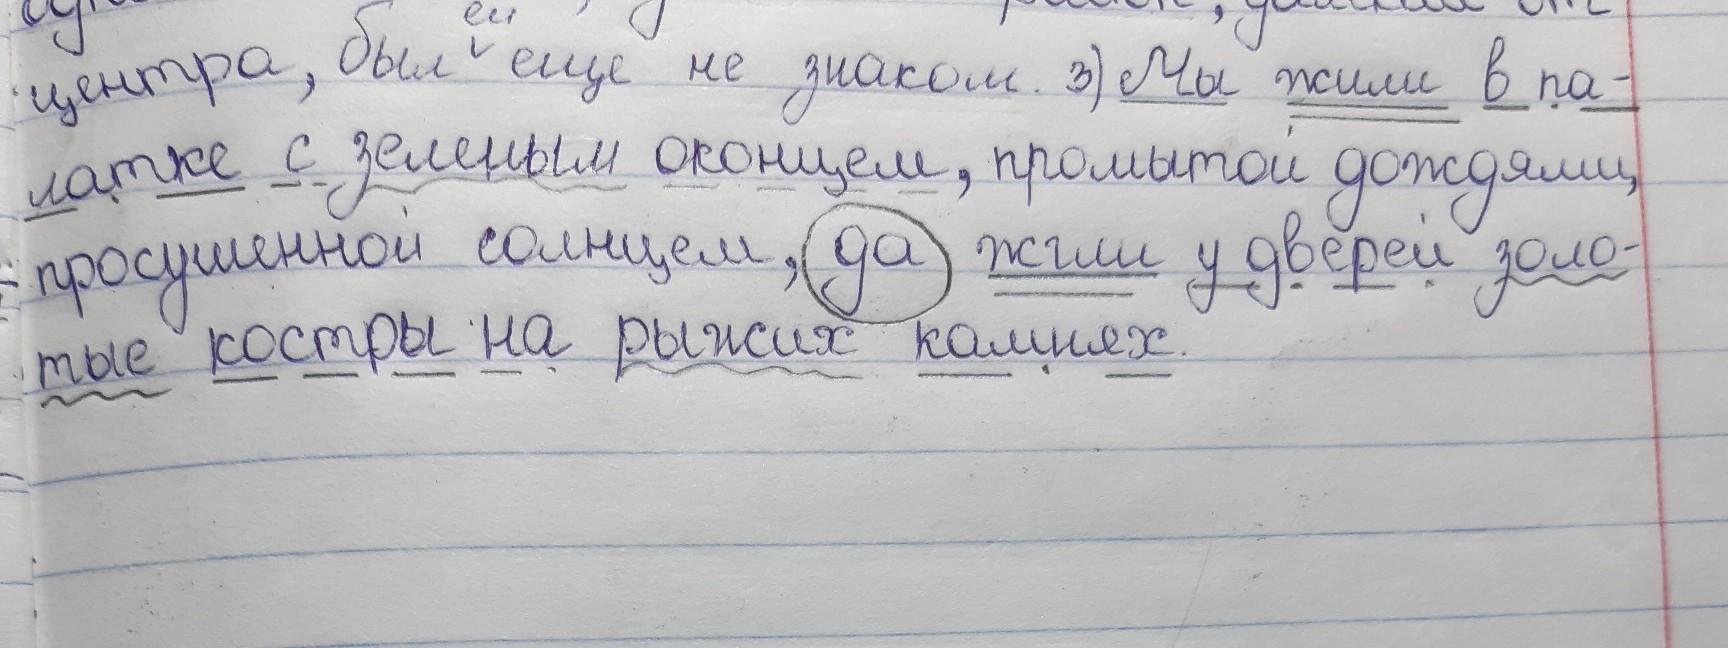 ей
центра, был еще не знаком. 3) Мы жили в па-
латке с зеленым оконцем, промытой дождями,
просушенной солнцем, да жгли у дверей золо-
тые костры на рыжих камнях.